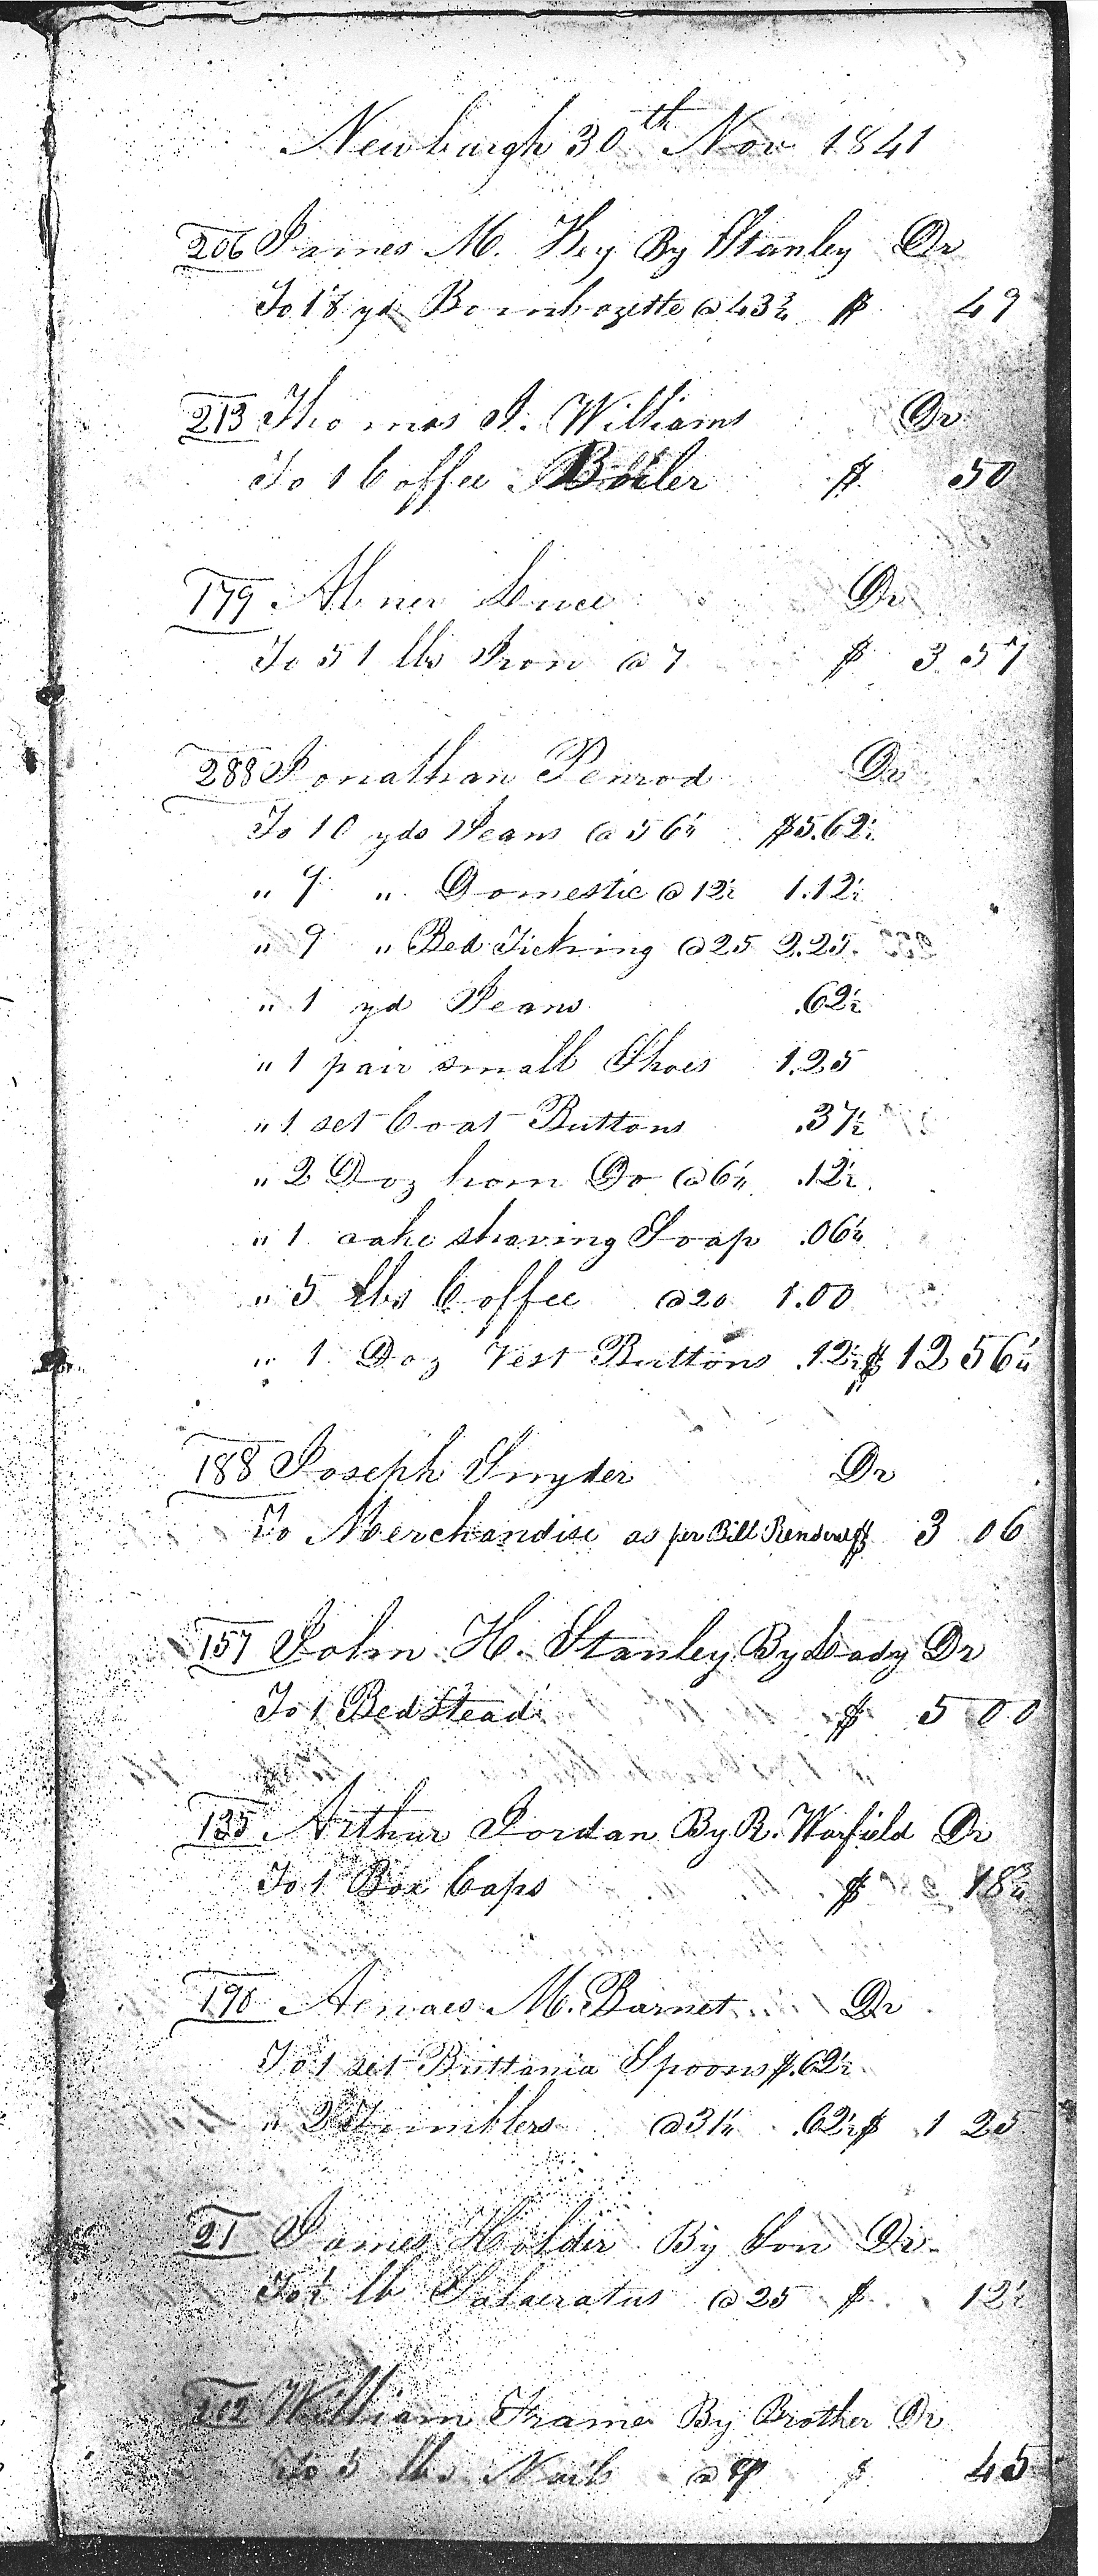 Newburgh 30th Nov 1841
206 James M. Key By Stanley Dr
To 1⅛ yd Bombazette @ 43¾ $ 49
213 Thomas J. Williams Dr
To 1 Coffee Boiler $ 50
179 Abner Luce Dr
To 51 lbs Iron @ 7 $ 3 57
288 Jonathan Penrod Dr
To 10 yds Jeans @ 56¼ $5.62½
" 9 " Domestic @ 12½ 1.12½
" 9 " Bed Ticking @ 25 2.25
" 1 yd Jeans .62½
" 1 pair small Shoes 1.25
" 1 set Coat Buttons .37½
" 2 Doz horn Do @ 6¼ .12½
" 1 cake shaving Soap .06¼
" 5 lbs Coffee @ 20 1.00
" 1 Doz Vest Buttons .12½ $ 12 56¼
188 Joseph Snyder Dr
To Merchandise as per Bill Rendered $ 3 06
157 John H. Stanley By Lady Dr
To 1 Bedstead $ 5 00
135 Arthur Jordan By R. Warfield Dr
To 1 Box Caps $ 18¾
190 Aenaes M. Barnet Dr
To 1 set Brittania Spoons $.62½
" 2 Tumblers @ 31¼ .62½ $ 1 25
21 James Holder By Son Dr
To ½ lb Salaeratus @ 25 $ 12½
202 William Frame By Brother Dr
To 5 lbs Nails @ 9 $ 45